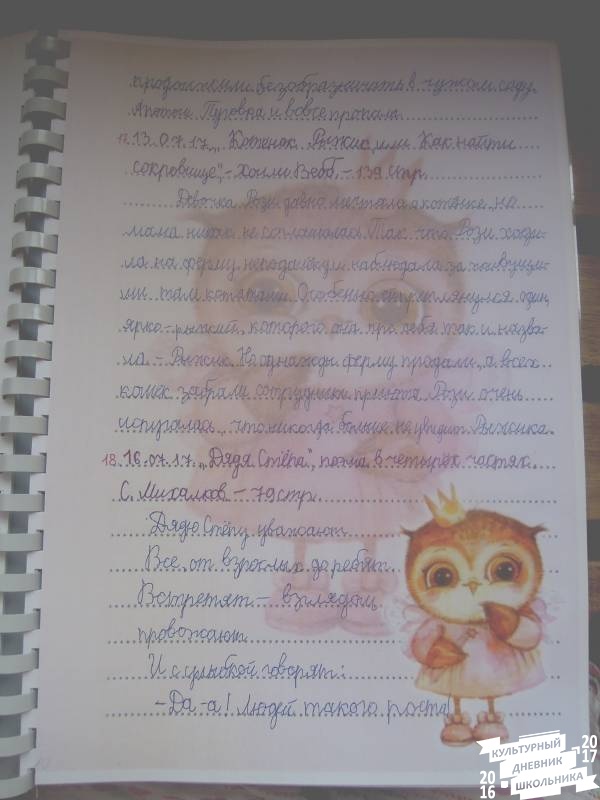 продолжили безобразничать в чужом саду.
Антон Пуговка и вовсе пропал.
17. 13.07.17. „Котёнок Рыжик, или Как найти
сокровище", - Холли Вебб. - 139 стр.
Девочка Рози давно мечтала о котёнке, но
мама никак не соглашалась. Так что Рози ходи-
ла на ферму неподалёку и наблюдала за живущи-
ми там котятами. Особенно ей приглянулся один,
ярко-рыжий, которого она про себя так и назва-
ла - Рыжик. Но однажды ферму продали, а всех
кошек забрали сотрудники приюта. Рози очень
испугалась, что никогда больше не увидит Рыжика.
18. 16.07.17. „Дядя Стёпа", поэма в четырёх частях.
С. Михалков - 79 стр.
Дядю Стёпу уважают
Все, от взрослых до ребят.
Встретят - взглядом
провожают
И с улыбкой говорят:
- Да-а! Людей такого роста
КУЛЬТУРНЫЙ
ДНЕВНИК
ШКОЛЬНИКА
2016
2017